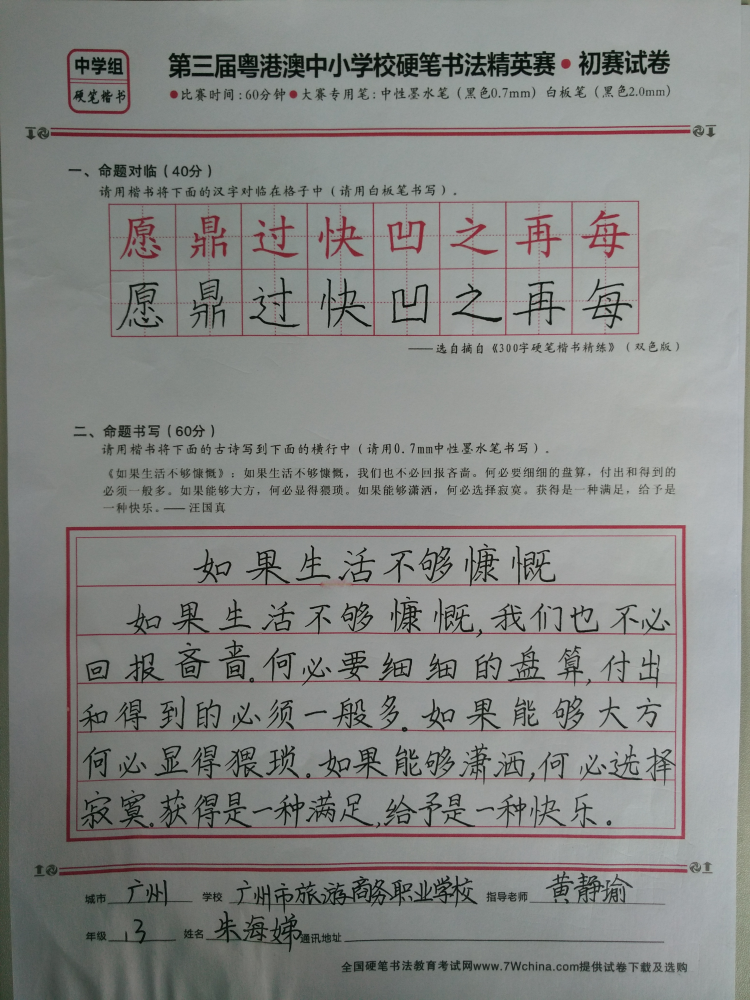 中学组
硬笔楷书
第三届粤港澳中小学校硬笔书法精英赛•初赛试卷
●比赛时间:60分钟●大赛专用笔:中性墨水笔(黑色0.7mm) 白板笔(黑色2.0mm)
一、命题对临(40分)
请用楷书将下面的汉字对临在格子中(请用白板笔书写)。
愿鼎过快凹之再每
愿鼎过快凹之再每
——选自摘自《300字硬笔楷书精练》(双色版)
二、命题书写(60分)
请用楷书将下面的古诗写到下面的横行中(请用0.7mm中性墨水笔书写)。
《如果生活不够慷慨》:如果生活不够慷慨,我们也不必回报吝啬。何必要细细的盘算,付出和得到的
必须一般多。如果能够大方,何必显得猥琐。如果能够潇洒,何必选择寂寞。获得是一种满足,给予是
一种快乐。——汪国真
如果生活不够慷慨
如果生活不够慷慨,我们也不必
回报吝啬。何必要细细的盘算,付出
和得到的必须一般多。如果能够大方
何必显得猥琐。如果能够潇洒,何必选择
寂寞。获得是一种满足,给予是一种快乐。
城市 广州 学校 广州市旅游商务职业学校 指导老师 黄静瑜
年级 13 姓名 朱海娣 通讯地址
全国硬笔书法教育考试网www.7Wchina.com提供试卷下载及选购